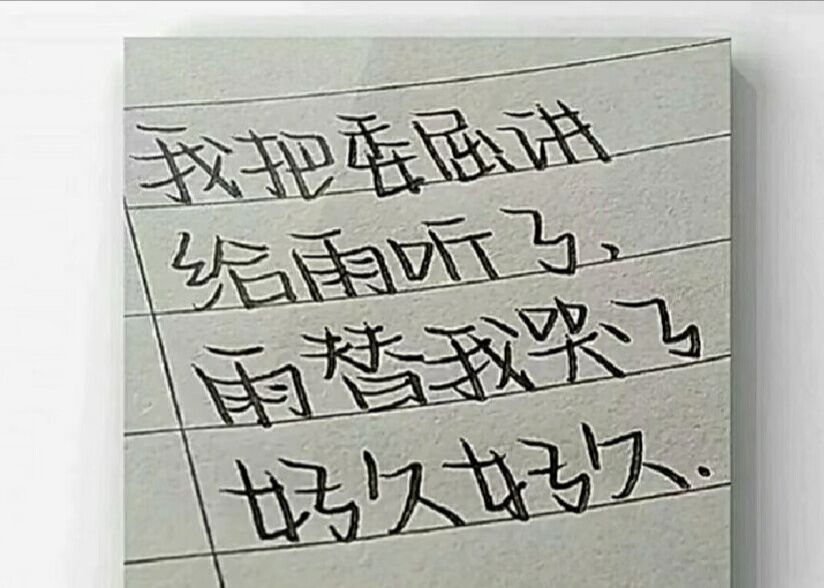 我把委屈讲
给雨听了,
雨替我哭了
好久好久.